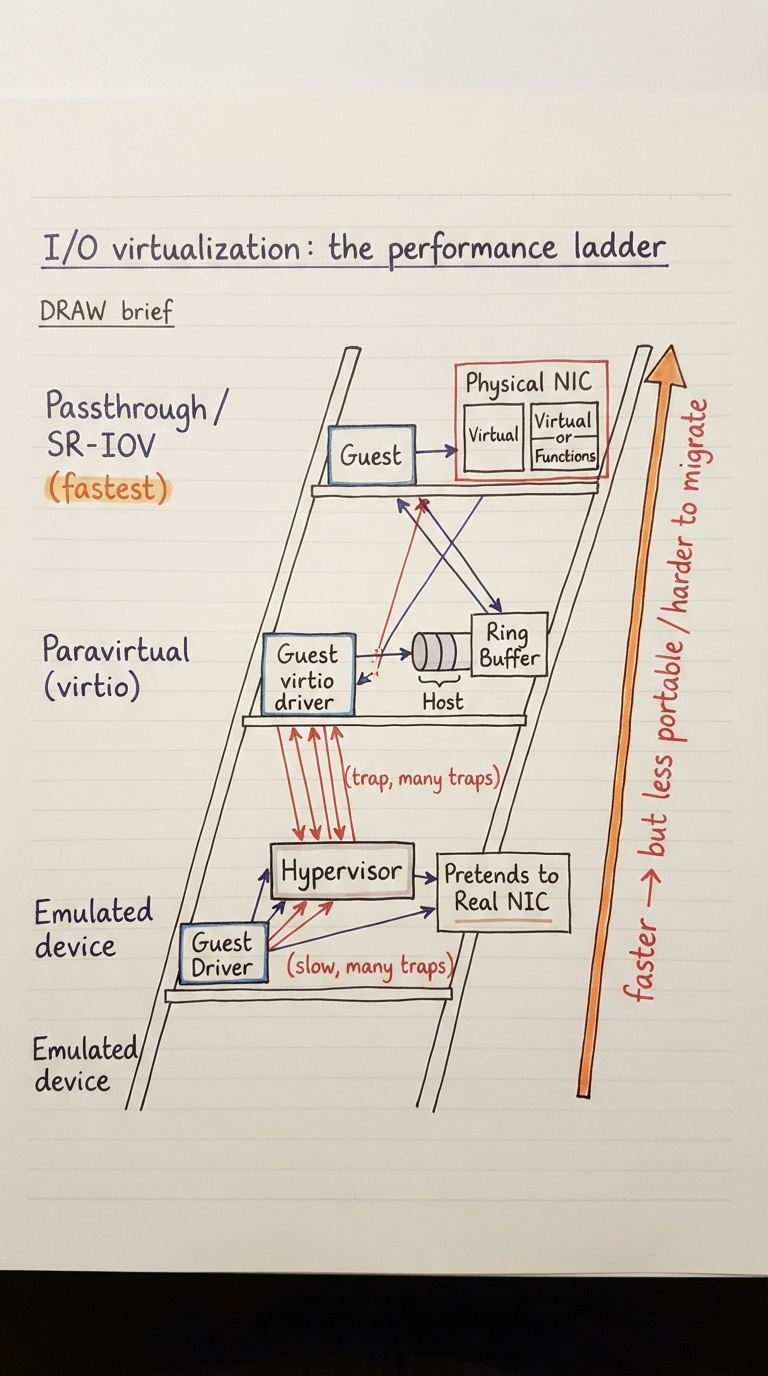 I/O virtualization: the performance ladder
DRAW brief
Passthrough/
SR-IOV
(fastest)
Guest
Physical NIC
Virtual
Virtual
or
Functions
Paravirtual
(virtio)
Guest
virtio
driver
Host
Ring
Buffer
(trap, many traps)
Hypervisor
Pretends to
Real NIC
Emulated
device
Guest
Driver
(slow, many traps)
Emulated
device
faster → but less portable/harder to migrate